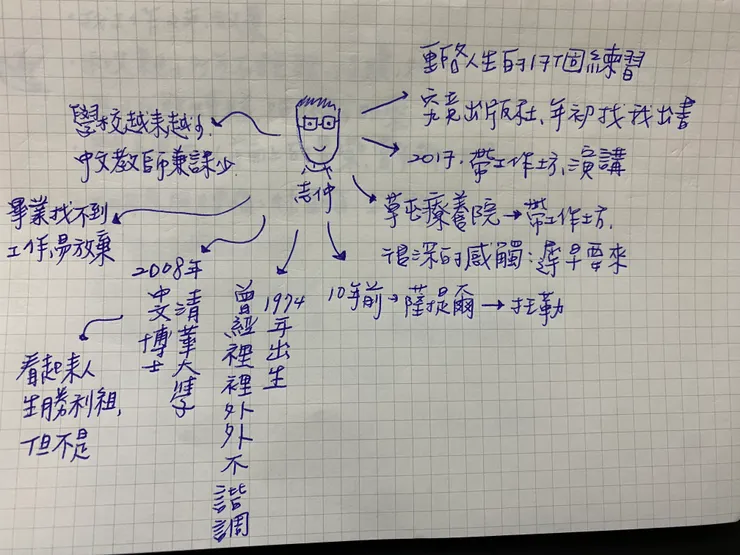 重啟人生的17個練習
究竟出版社、年初找我出書
2017.帶工作坊、演講
草屯療養院→帶工作坊.
很深的感觸:遲早要來
10年前→薩提爾→托勒
志仲
1974年出生
曾經裡裡外外不諧調
2008年
清華大學
中文博士
看起來人
生勝利組,
但不是
學校越來越少
中文教師兼課少.
畢業找不到
工作,易放棄